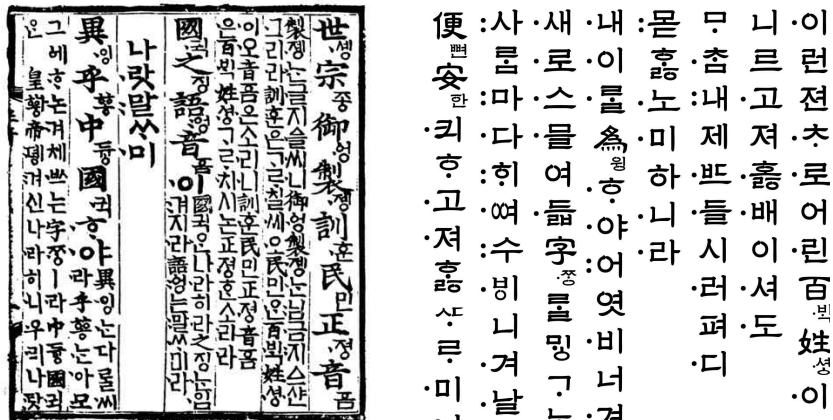 世솅宗조ᇰ御ᅌᅥᆼ製졩訓훈民민正져ᇰ音ᅙᅳᆷ
製졩ᄂᆞᆫ글지ᅀᅳᆯ씨니御ᅌᅥᆼ製졩ᄂᆞᆫ님금지ᅀᆞ샨
그리라訓훈은ᄀᆞᄅᆞ칠씨오民민ᄋᆞᆫ百ᄇᆡᆨ姓셔ᇰ
이오音ᅙᅳᆷ은소리니訓훈民민正져ᇰ音ᅙᅳᆷ
은百ᄇᆡᆨ姓셔ᇰᄀᆞᄅᆞ치시논正져ᇰᄒᆞᆫ소리라
國귁之징語ᅌᅥᆼ音ᅙᅳᆷ이
國귁ᄋᆞᆫ나라히라之징ᄂᆞᆫ입
겨지라語ᅌᅥᆼ는말ᄊᆞ미라
나랏말ᄊᆞ미
異잉乎ᅘᅩᆼ中듀ᇰ國귁ᄒᆞ야
異잉ᄂᆞᆫ다ᄅᆞᆯ씨
라乎ᅘᅩᆼᄂᆞᆫ아모
그ᅌᅦᄒᆞ논겨체ᄡᅳ는字ᄍᆞᆼㅣ라中듀ᇰ國귁
ᄋᆞᆫ皇ᅘᅪᇰ帝뎽겨신나라히니우리나랏
·이런젼·ᄎᆞ·로어·린百·ᄇᆡᆨ姓·셔ᇰ·이
니르·고·져·호ᇙ·배이·셔·도
ᄆᆞ·ᄎᆞᆷ:내제·ᄠᅳ·들시·러펴·디
:몯ᄒᆞᇙ·노·미하·니·라
·내·이·ᄅᆞᆯ爲·윙·ᄒᆞ·야:어엿·비너·겨
·새·로·스·믈여·듧字·ᄍᆞᆼ·ᄅᆞᆯᄆᆡᇰ·ᄀᆞ
:사ᄅᆞᆷ:마·다:ᄒᆡ·ᅇᅧ:수·ᄫᅵ니·겨·날
便뼌安한·킈ᄒᆞ·고·져ᄒᆞᇙᄯᆞᄅᆞ·미